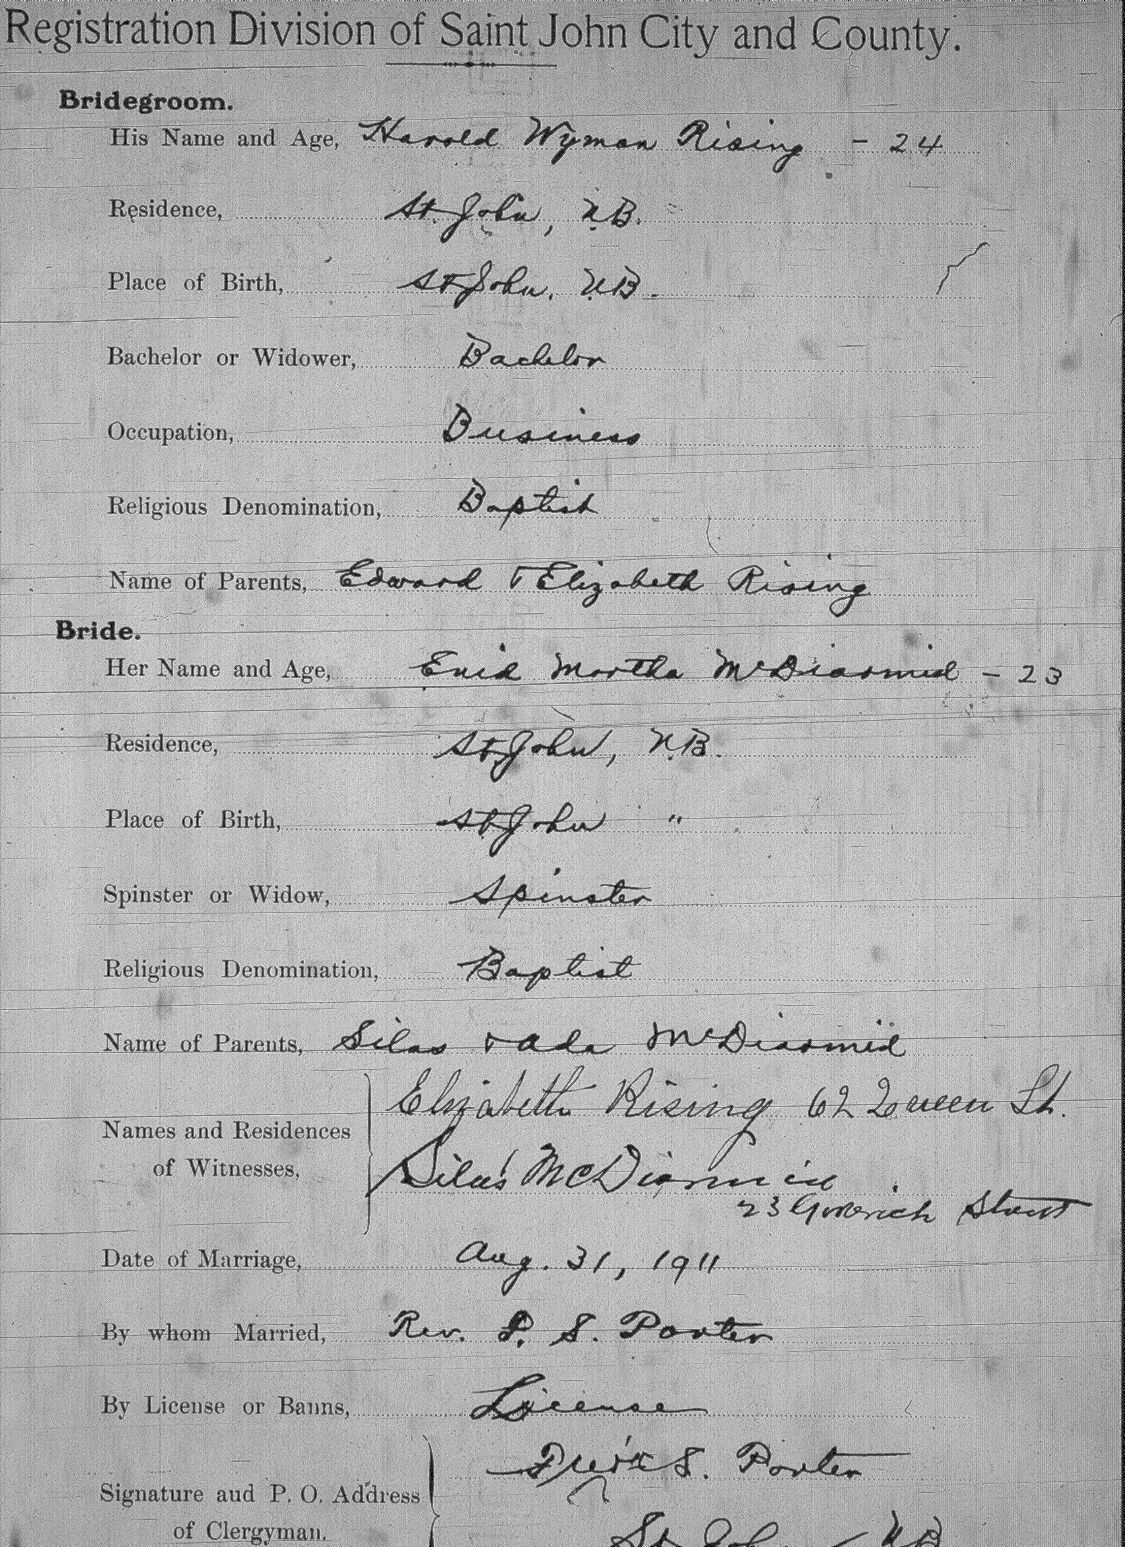 Registration Division of Saint John City and County.
Bridegroom.
His Name and Age, Harold Wyman Rising - 24
Residence, St. John, N.B.
Place of Birth, St John, N.B.
Bachelor or Widower, Bachelor
Occupation, Business
Religious Denomination, Baptist
Name of Parents, Edward & Elizabeth Rising
Bride.
Her Name and Age, Enid Martha McDiarmid - 23
Residence, St. John, N.B.
Place of Birth, St John "
Spinster or Widow, Spinster
Religious Denomination, Baptist
Name of Parents, Silas & Ada McDiarmid
Elizabeth Rising 62 Queen St.
Names and Residences
of Witnesses,
Silas McDiarmid
23 Goderich Street
Date of Marriage, Aug. 31, 1911
By whom Married, Rev. F. S. Porter
By License or Banns, License
S. Porter
Signature and P. O. Address
of Clergyman. St John N B